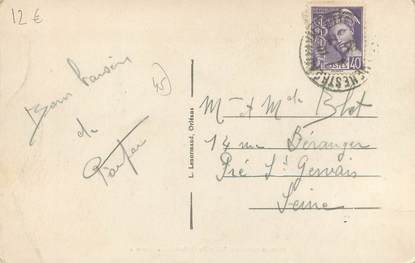 12€
45
Bons baisers
de
L. Lenormand, Orléans
POSTES 40
M. et Mde Blot
14 rue Béranger
Pré St Gervais
Seine